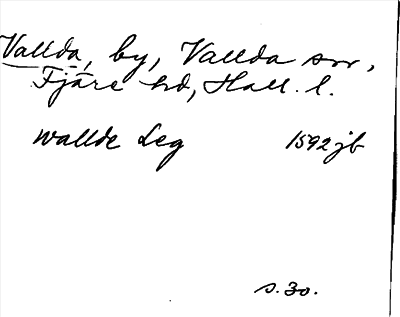 Vallda, by, Vallda sn,
Fjäre hd, Hall. l.
wallde Leg 1592 jb
s. 30.